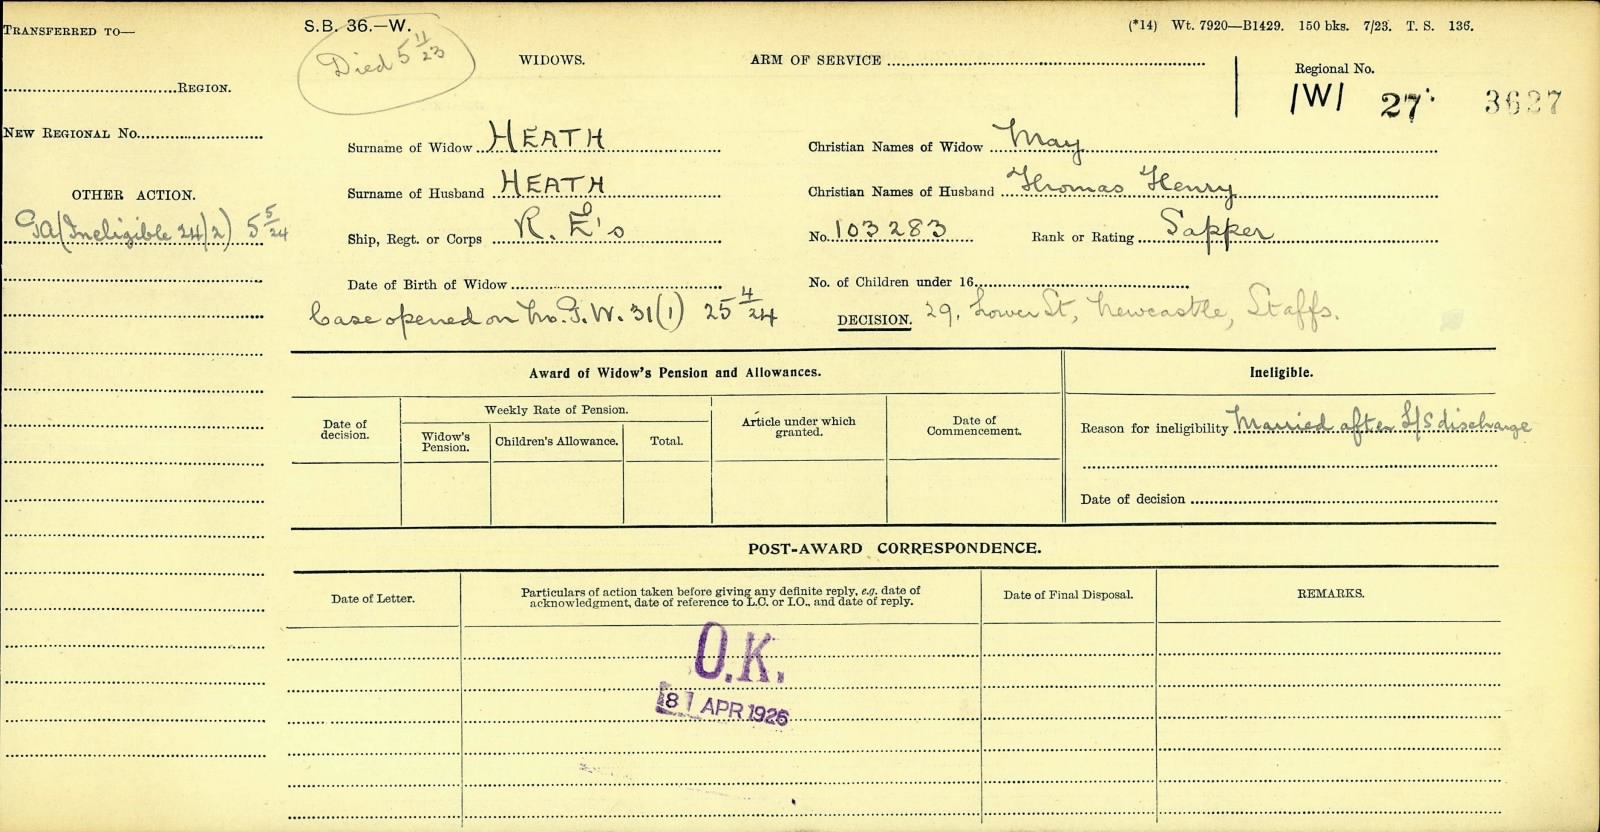 TRANSFERRED TO—
REGION.
NEW REGIONAL No.
OTHER ACTION.
(Ineligible 24/2) 5 5/24
S.B. 36.—W.
Died 5 11/23
WIDOWS.
ARM OF SERVICE
(*14) Wt. 7920—B1429. 150 bks. 7/23. T. S. 136.
Regional No.
/W/ 27 3627
Surname of Widow HEATH
Christian Names of Widow May
Surname of Husband HEATH
Christian Names of Husband Thomas Henry
Ship, Regt. or Corps R.E's
No. 103283 Rank or Rating Sapper
Date of Birth of Widow
No. of Children under 16
Case opened on M.P.W. 31(1) 25 4/24
DECISION. 29, Lower St, Newcastle, Staffs.
Award of Widow's Pension and Allowances.
Ineligible.
Date of decision.
Weekly Rate of Pension.
Widow's Pension.
Children's Allowance.
Total.
Article under which granted.
Date of Commencement.
Reason for ineligibility Married after L/S discharge
Date of decision
POST-AWARD CORRESPONDENCE.
Date of Letter.
Particulars of action taken before giving any definite reply, e.g. date of
acknowledgment, date of reference to L.C. or I.O., and date of reply.
Date of Final Disposal.
REMARKS.
O.K.
8 APR 1926